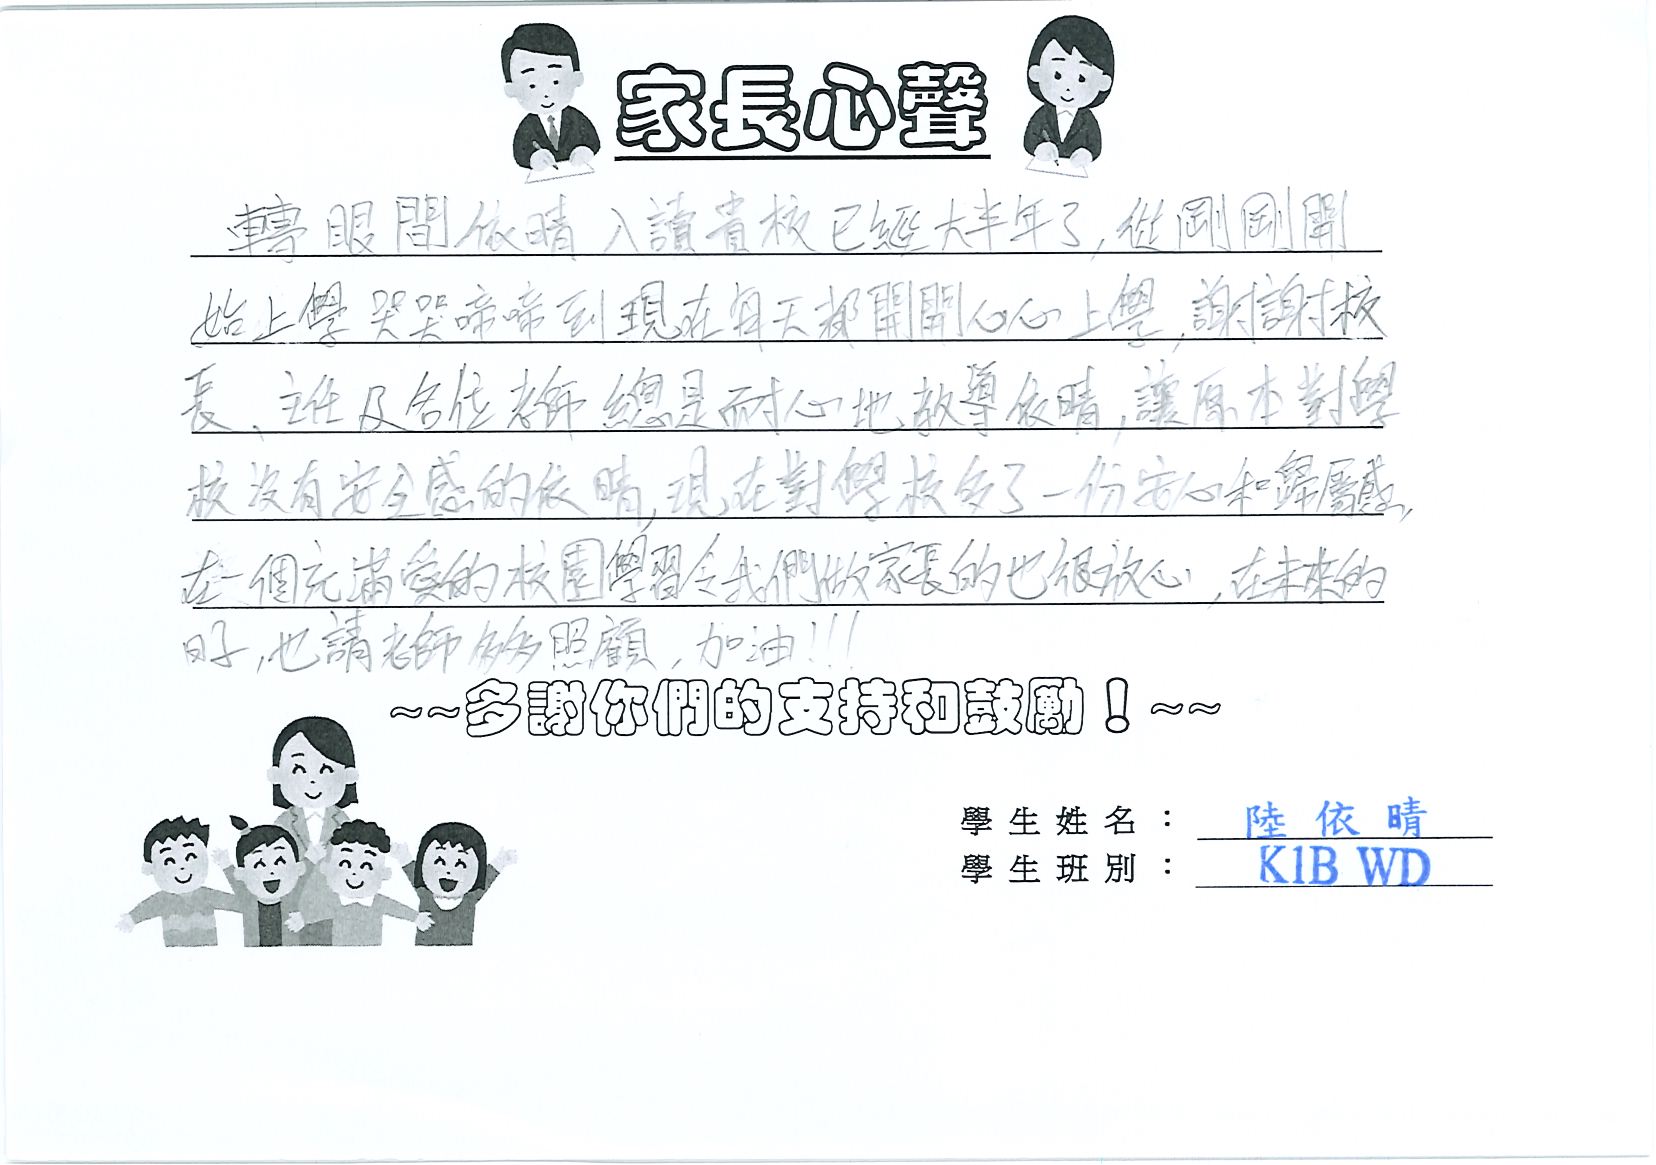 家長心聲
轉眼間依晴入讀貴校已經大半年了,從剛剛開
始上學哭哭啼啼到現在每天都開開心心上學,謝謝校
長、主任及各位老師總是耐心地教導依晴,讓原本對學
校沒有安全感的依晴,現在對學校多了一份安心和歸屬感,
在一個充滿愛的校園學習令我們做家長的也很放心,在未來的
日子,也請老師多多照顧,加油!!!
~~多謝你們的支持和鼓勵!~~
學生姓名:陸依晴
學生班別:K1B WD